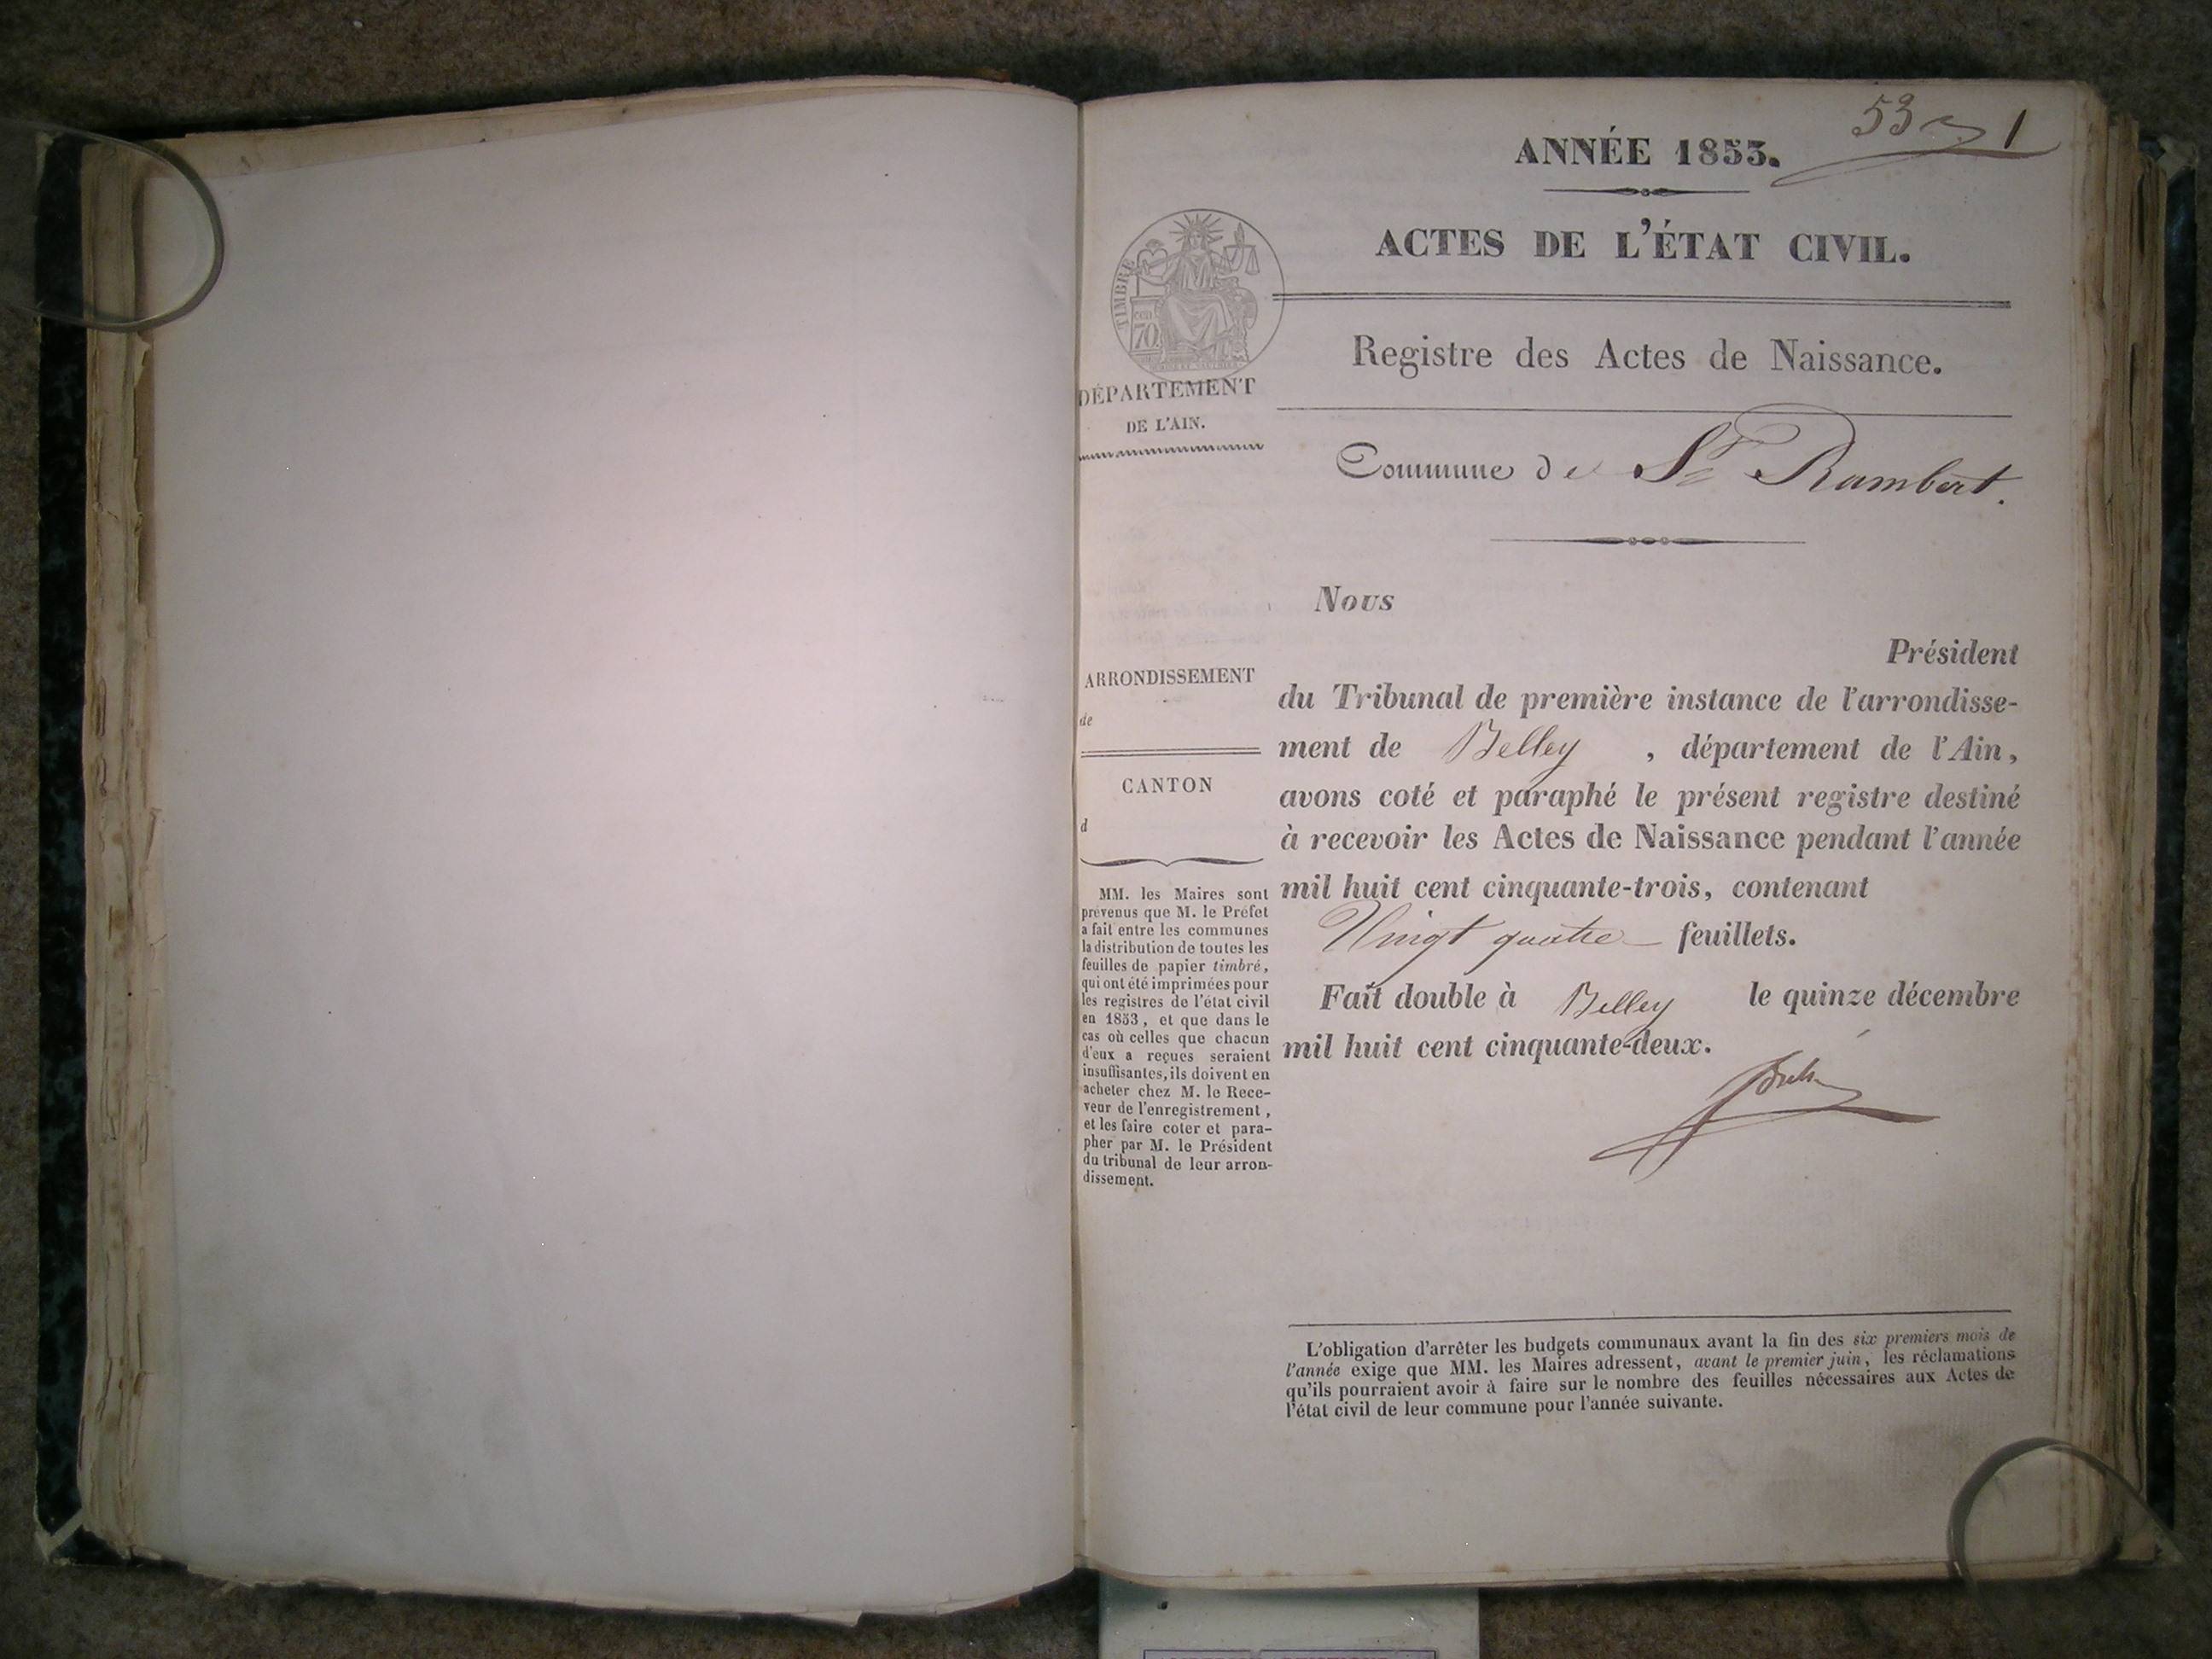 53 1
ANNÉE 1853.
ACTES DE L'ÉTAT CIVIL.
TIMBRE
cen
70.
Registre des Actes de Naissance.
DÉPARTEMENT
DE L'AIN.
Commune de St Rambert.
Nous
Président
du Tribunal de première instance de l'arrondisse-
ment de Belley , département de l'Ain,
avons coté et paraphé le présent registre destiné
à recevoir les Actes de Naissance pendant l'année
mil huit cent cinquante-trois, contenant
Vingt quatre feuillets.
Fait double à Belley le quinze décembre
mil huit cent cinquante-deux.
ARRONDISSEMENT
de
CANTON
d
MM. les Maires sont
prévenus que M. le Préfet
a fait entre les communes
la distribution de toutes les
feuilles de papier timbré,
qui ont été imprimées pour
les registres de l'état civil
en 1853, et que dans le
cas où celles que chacun
d'eux a reçues seraient
insuffisantes, ils doivent en
acheter chez M. le Rece-
veur de l'enregistrement,
et les faire coter et para-
pher par M. le Président
du tribunal de leur arron-
dissement.
L'obligation d'arrêter les budgets communaux avant la fin des six premiers mois de
l'année exige que MM. les Maires adressent, avant le premier juin, les réclamations
qu'ils pourraient avoir à faire sur le nombre des feuilles nécessaires aux Actes de
l'état civil de leur commune pour l'année suivante.